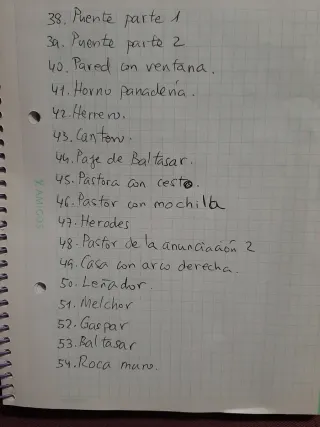 38. Puente parte 1
39. Puente parte 2
40. Pared con ventana.
41. Horno panadería.
42. Herrero.
43. Cantero.
44. Paje de Baltasar.
45. Pastora con cesto.
46. Pastor con mochila
47. Herodes
48. Pastor de la anunciación 2
49. Casa con arco derecha.
50. Leñador.
51. Melchor
52. Gaspar
53. Baltasar
54. Roca muro.